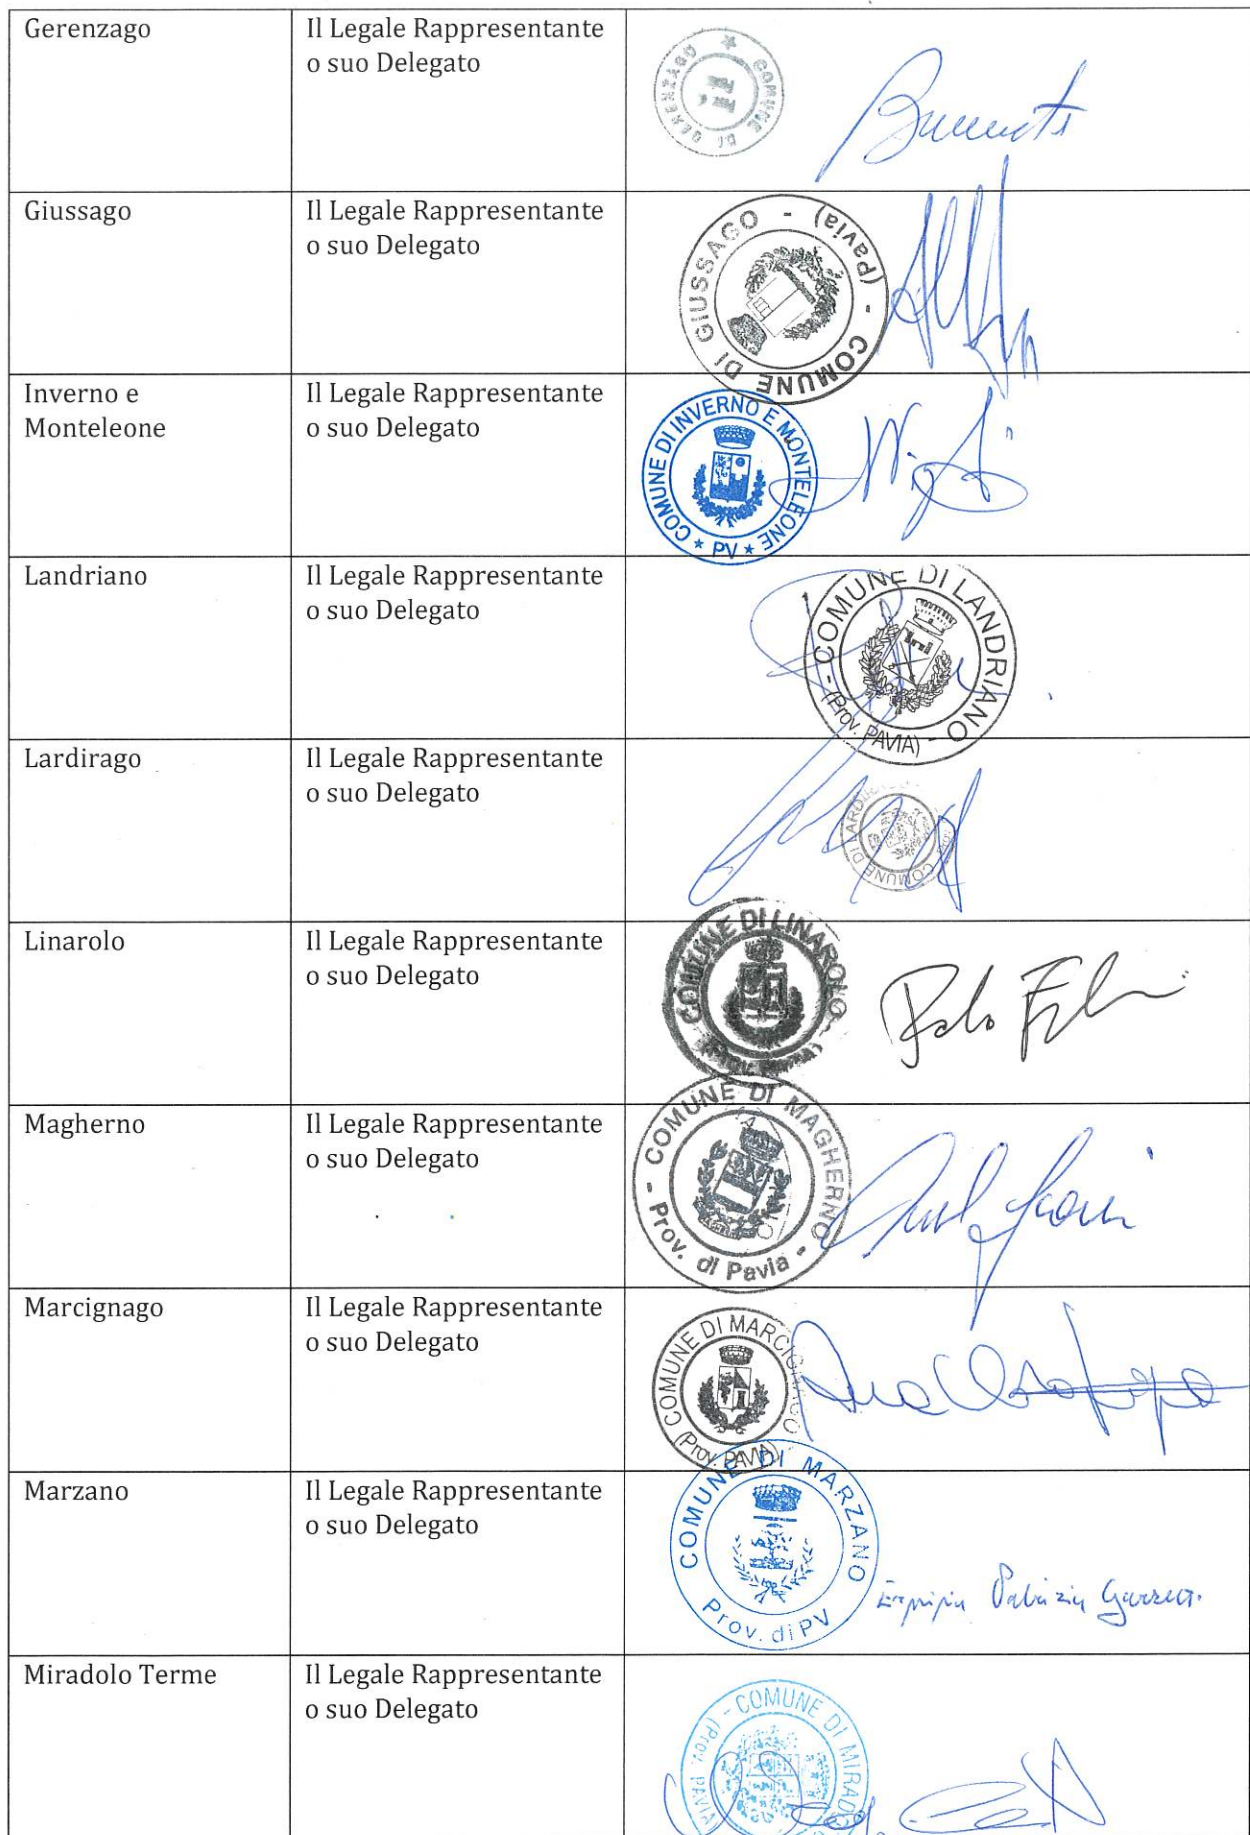 Gerenzago
Il Legale Rappresentante
o suo Delegato
COMUNE DI GERENZAGO
11
Giussago
Il Legale Rappresentante
o suo Delegato
COMUNE DI GIUSSAGO - (Pavia) -
Inverno e
Monteleone
Il Legale Rappresentante
o suo Delegato
COMUNE DI INVERNO E MONTELEONE
* PV *
Landriano
Il Legale Rappresentante
o suo Delegato
- COMUNE DI LANDRIANO -
(Prov. PAVIA)
Lardirago
Il Legale Rappresentante
o suo Delegato
COMUNE DI
Linarolo
Il Legale Rappresentante
o suo Delegato
COMUNE DI LINAROLO
Magherno
Il Legale Rappresentante
o suo Delegato
- COMUNE DI MAGHERNO -
Prov. di Pavia
Marcignago
Il Legale Rappresentante
o suo Delegato
COMUNE DI MARCIGNAGO
(Prov. PAVIA)
Marzano
Il Legale Rappresentante
o suo Delegato
COMUNE DI MARZANO
Prov. di PV
Miradolo Terme
Il Legale Rappresentante
o suo Delegato
(Prov. PAVIA) - COMUNE DI